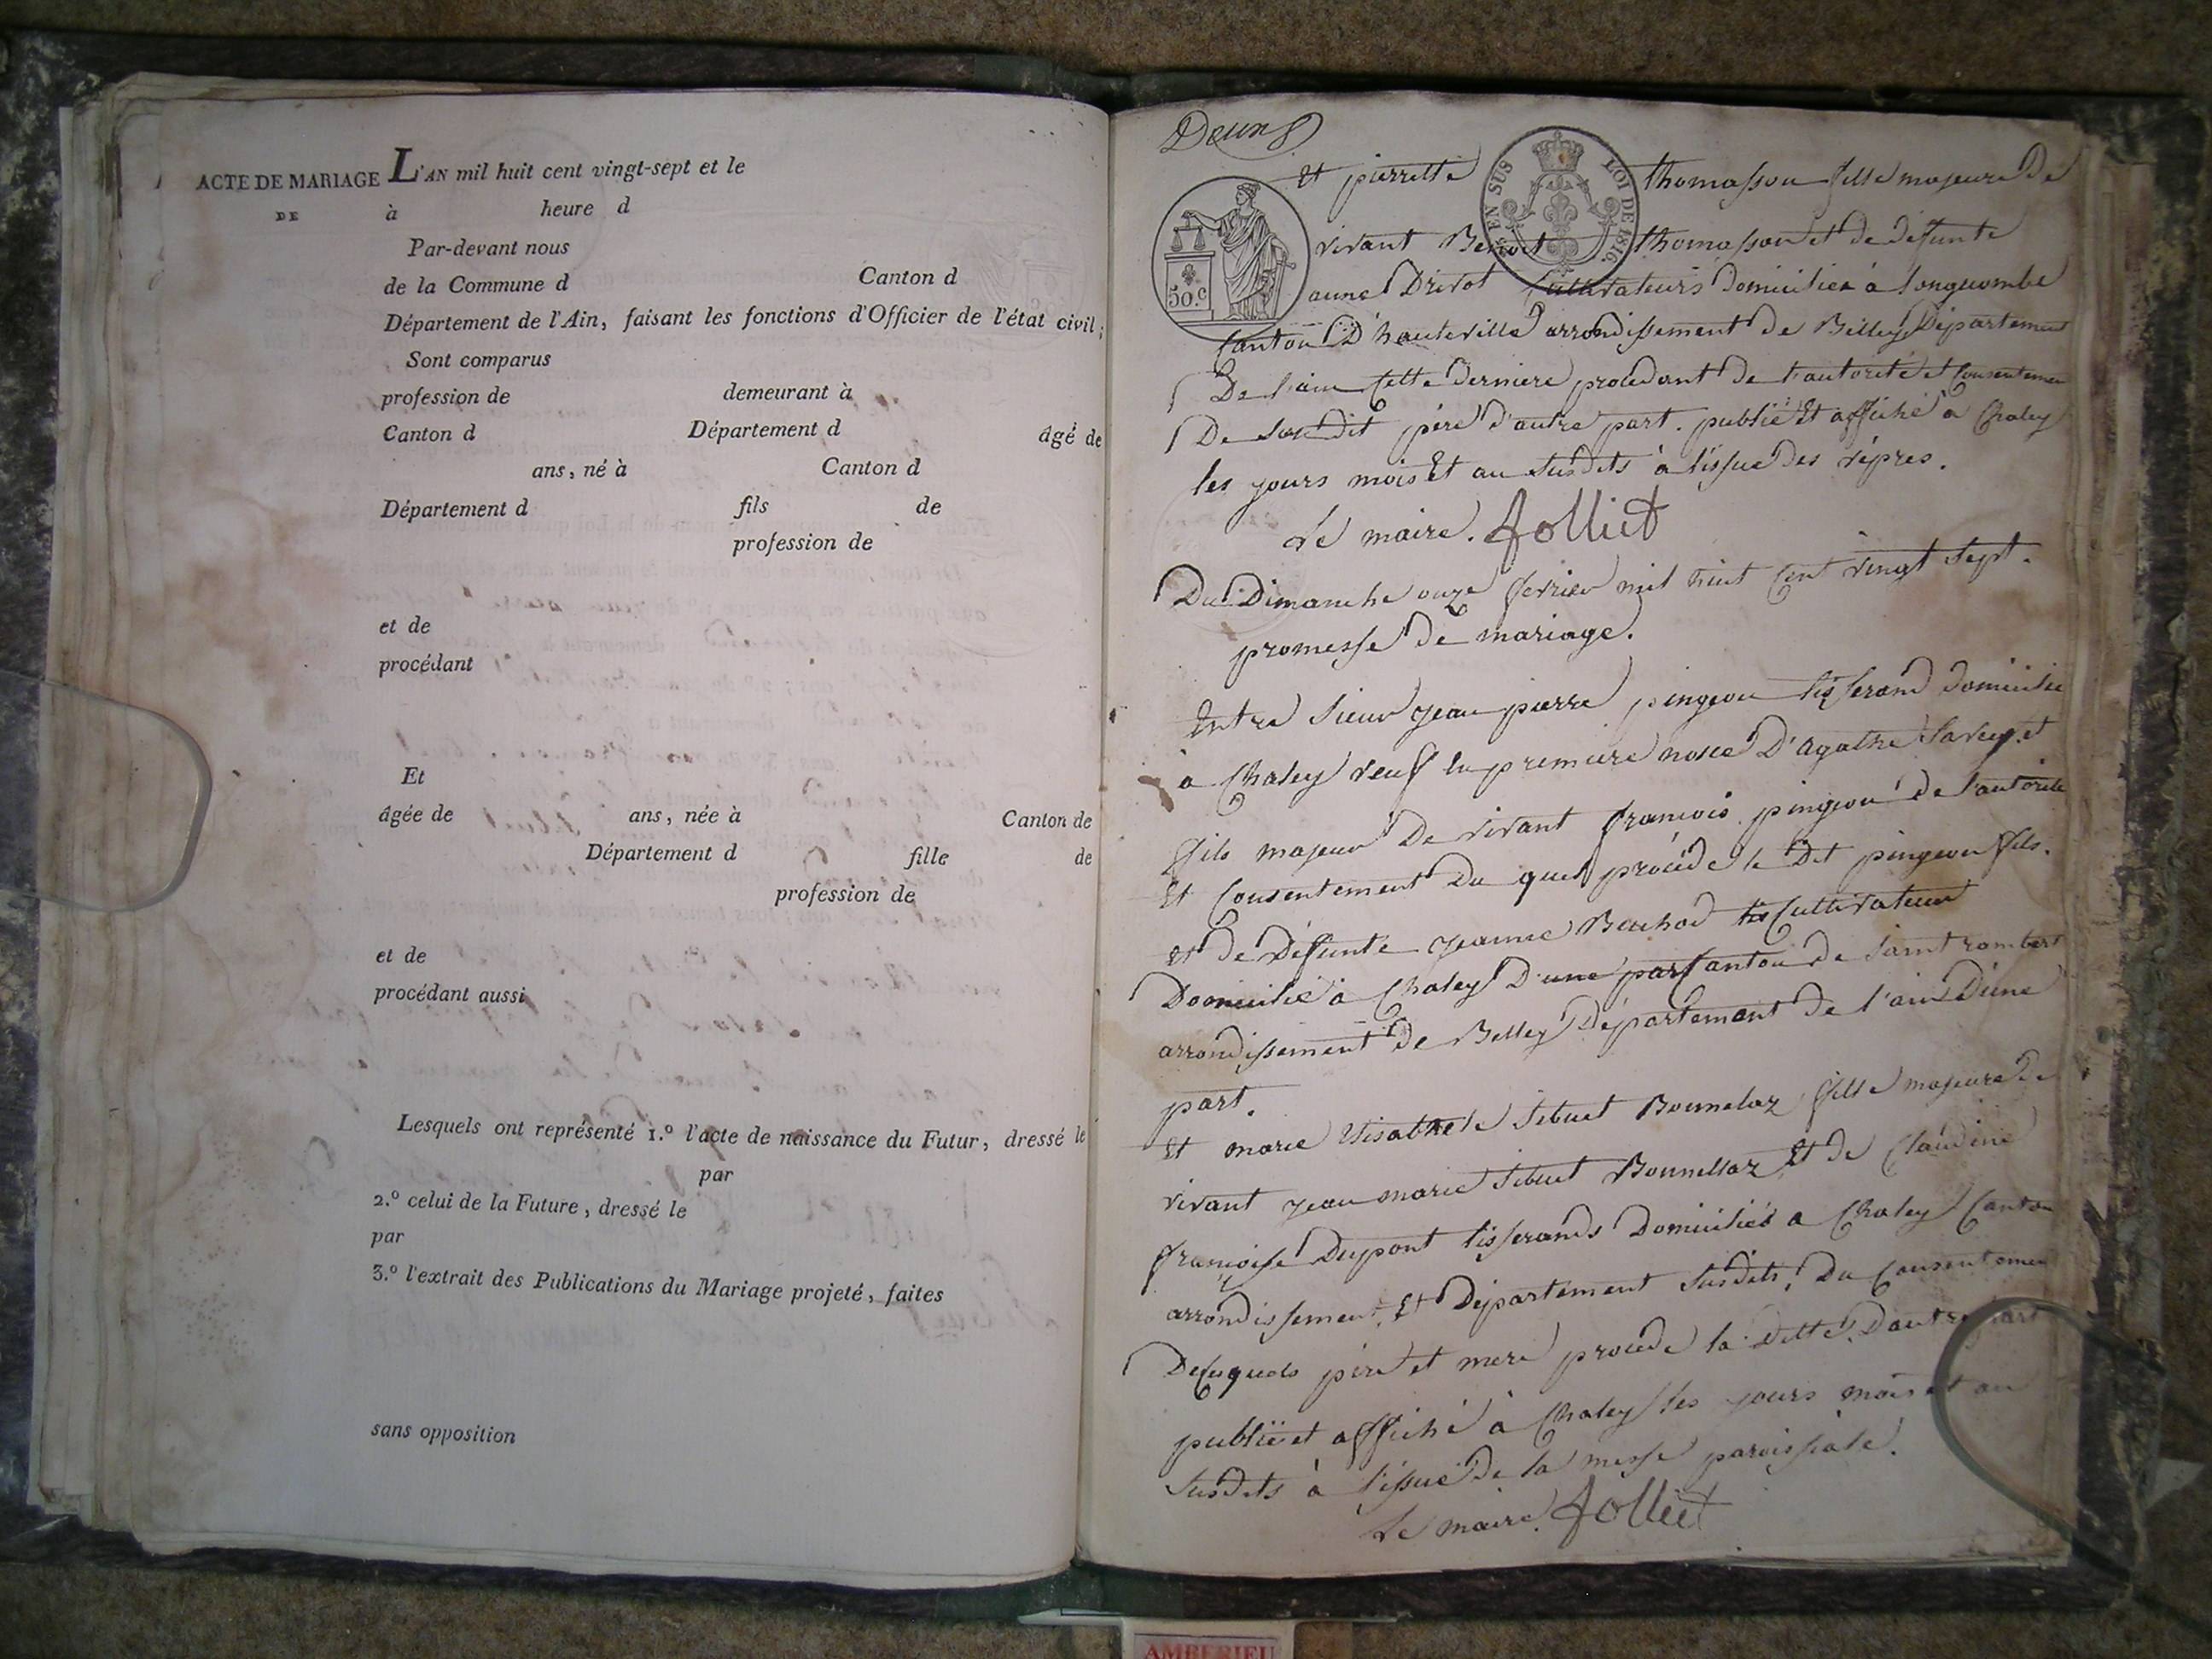 ACTE DE MARIAGE
DE
L'AN mil huit cent vingt-sept et le
à heure d
Par-devant nous
de la Commune d Canton d
Département de l'Ain, faisant les fonctions d'Officier de l'état civil;
Sont comparus
profession de demeurant à
Canton d Département d âgé de
ans, né à Canton d
Département d fils de
profession de
et de
procédant
Et
âgée de ans, née à Canton de
Département d fille de
profession de
et de
procédant aussi
Lesquels ont représenté 1.º l'acte de naissance du Futur, dressé le
par
2.º celui de la Future, dressé le
par
3.º l'extrait des Publications du Mariage projeté, faites
sans opposition
Deux
EN SUS LOI DE 1816.
50.c
Et pierrette thomasson fille majeure De
vivant Benoit thomasson et de defunte
Drivot Cultivateurs Domiciliés à longecombe
Canton D'hauteville arrondissement de Belley Département
De l'ain Cette derniere procedant de l'autorité et Consentemen
De père d'autre part. publié Et affiché a Chaley
les jours mois Et an susdits à l'issue des vépres.
Le maire. Jolliet
Du Dimanche onze fevrier mil huit Cent vingt sept.
promesse De mariage.
Entre sieur jean pierre pingeon tisserand domicilié
a Chaley veuf en premiere noces D'agathe Savey et
fils majeur De vivant francois pingeon de l'autorité
Et Consentement du quel procéde le Dit pingeon fils.
et De Défunte jeanne Bauhod Cultivateur
Domicilié à Chaley D'une part Canton de saint rambert
arrondissement de Belley Département de l'ain D'une
part.
Et marie Elisabethe Sibuet Bonnelaz fille majeure De
vivant jean marie Sibuet Bonnellaz Et de Claudine
françoise Dupont tisserands Domiciliés a Chaley Canton
arrondissement Et Département susdits, Du Consentemen
Desquels père et mere procede la Ditte D'autre part
publié et affiché à Chaley les jours mois et an
susdits à l'issue de la messe paroissiale.
Le maire. Jolliet
AMBERIEU